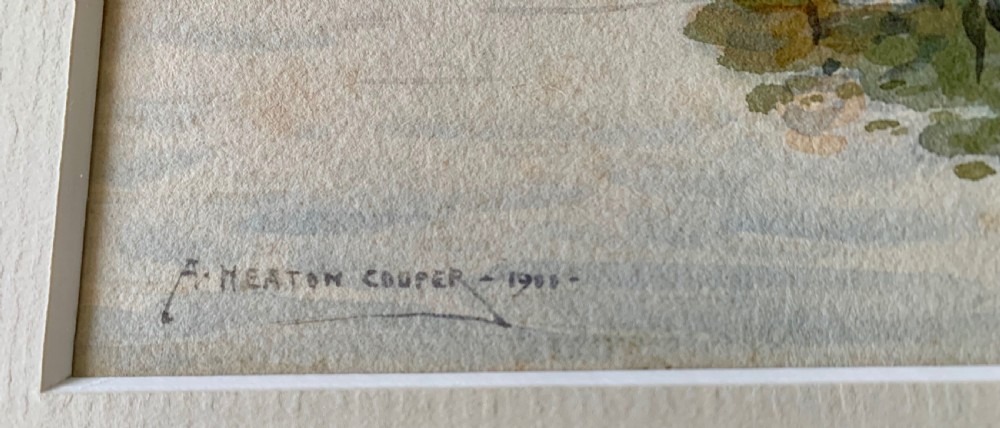 A. HEATON COOPER – 1900 –